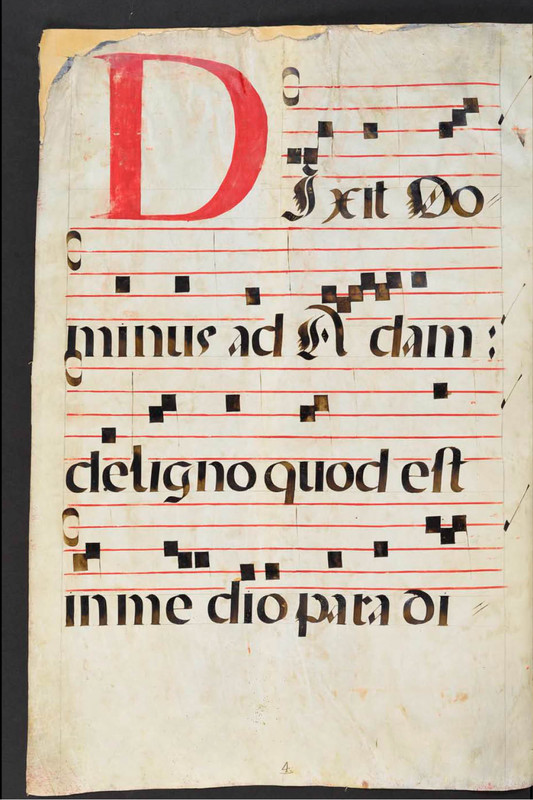 DIxit Do
minus ad Adam:
de ligno quod est
in me dio para di
4